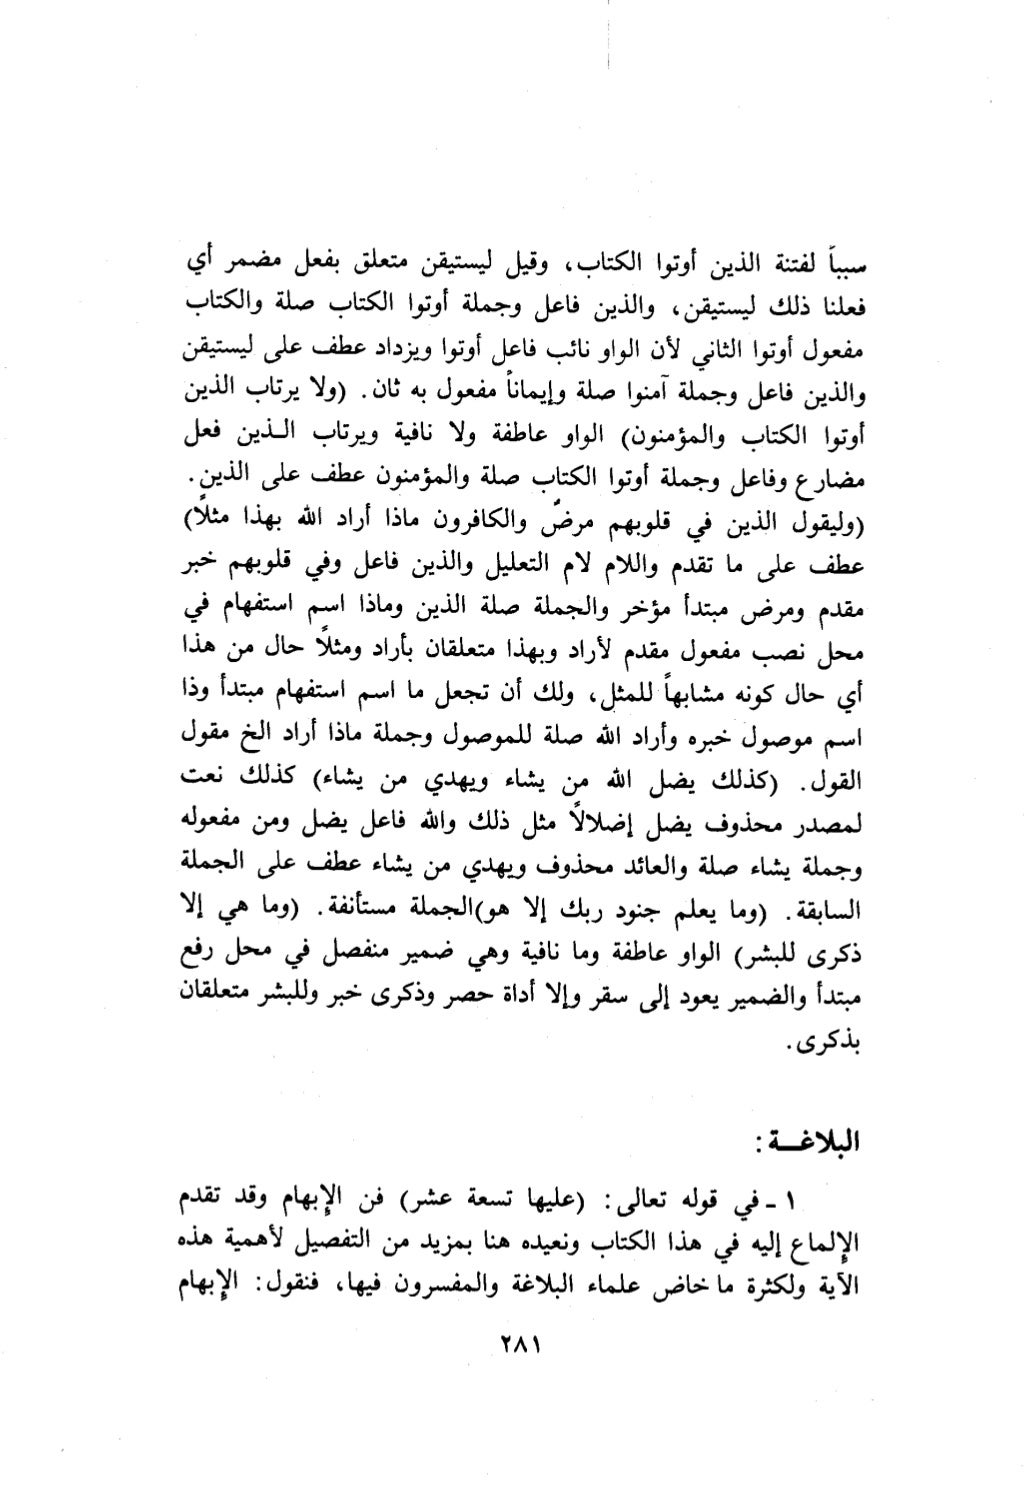 سبباً لفتنة الذين أوتوا الكتاب، وقيل ليستيقن متعلق بفعل مضمر أي
فعلنا ذلك ليستيقن، والذين فاعل وجملة أوتوا الكتاب صلة والكتاب
مفعول أوتوا الثاني لأن الواو نائب فاعل أوتوا ويزداد عطف على ليستيقن
والذين فاعل وجملة آمنوا صلة وإيماناً مفعول به ثان. (ولا يرتاب الذين
أوتوا الكتاب والمؤمنون) الواو عاطفة ولا نافية ويرتاب الـذين فعل
مضارع وفاعل وجملة أوتوا الكتاب صلة والمؤمنون عطف على الذين.
(وليقول الذين في قلوبهم مرضٌ والكافرون ماذا أراد الله بهذا مثلاً)
عطف على ما تقدم واللام لام التعليل والذين فاعل وفي قلوبهم خبر
مقدم ومرض مبتدأ مؤخر والجملة صلة الذين وماذا اسم استفهام في
محل نصب مفعول مقدم لأراد وبهذا متعلقان بأراد ومثلاً حال من هذا
أي حال كونه مشابهاً للمثل، ولك أن تجعل ما اسم استفهام مبتدأ وذا
اسم موصول خبره وأراد الله صلة للموصول وجملة ماذا أراد الخ مقول
القول. (كذلك يضل الله من يشاء ويهدي من يشاء) كذلك نعت
لمصدر محذوف يضل إضلالاً مثل ذلك والله فاعل يضل ومن مفعوله
وجملة يشاء صلة والعائد محذوف ويهدي من يشاء عطف على الجملة
السابقة. (وما يعلم جنود ربك إلا هو)الجملة مستأنفة. (وما هي إلا
ذكرى للبشر) الواو عاطفة وما نافية وهي ضمير منفصل في محل رفع
مبتدأ والضمير يعود إلى سقر وإلا أداة حصر وذكرى خبر وللبشر متعلقان
بذكرى.
البلاغـــة:
١ - في قوله تعالى: (عليها تسعة عشر) فن الإبهام وقد تقدم
الإلماع إليه في هذا الكتاب ونعيده هنا بمزيد من التفصيل لأهمية هذه
الآية ولكثرة ما خاض علماء البلاغة والمفسرون فيها، فنقول: الإبهام
٢٨١